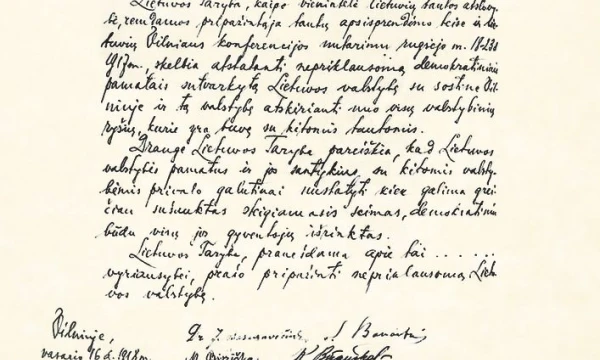 Lietuvos Taryba, kaipo vienintelė lietuvių tautos atstovy-
bė, remdamos pripažintąja tautų apsisprendimo teise ir lie-
tuvių Vilniaus konferencijos nutarimu rugsėjo m. 18-23 d
1917 m., skelbia atstatanti nepriklausomą demokratiniais
pamatais sutvarkytą Lietuvos valstybę su sostine Vil-
niuje ir tą valstybę atskirianti nuo visų valstybinių
ryšių, kurie yra buvę su kitomis tautomis.
Drauge Lietuvos Taryba pareiškia, kad Lietuvos
valstybės pamatus ir jos santykius su kitomis valsty-
bėmis privalo galutinai nustatyti kiek galima grei-
čiau sušauktas steigiamasis seimas, demokratiniu
būdu visų jos gyventojų išrinktas.
Lietuvos Taryba, pranešdama apie tai . . . . . .
vyriausybei, prašo pripažinti nepriklausomą Lietu-
vos valstybę.
Vilniuje,
vasario 16 d. 1918 m.
Dr. J.